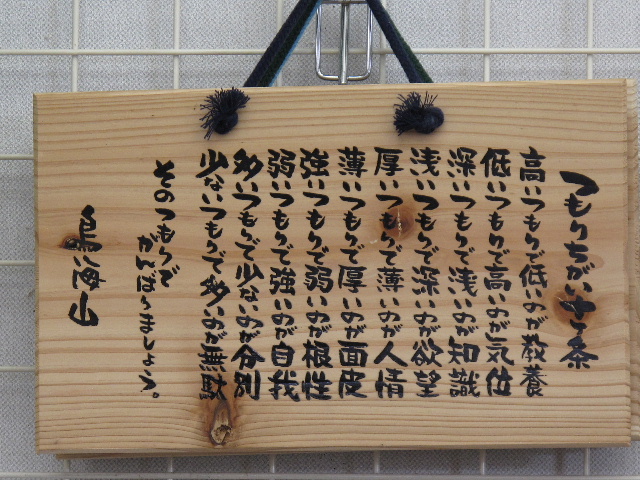 つもりちがい十ヶ条
高いつもりで低いのが教養
低いつもりで高いのが気位
深いつもりで浅いのが知識
浅いつもりで深いのが欲望
厚いつもりで薄いのが人情
薄いつもりで厚いのが面皮
強いつもりで弱いのが根性
弱いつもりで強いのが自我
多いつもりで少ないのが分別
少ないつもりで多いのが無駄
そのつもりで
がんばりましょう。
鳥海山